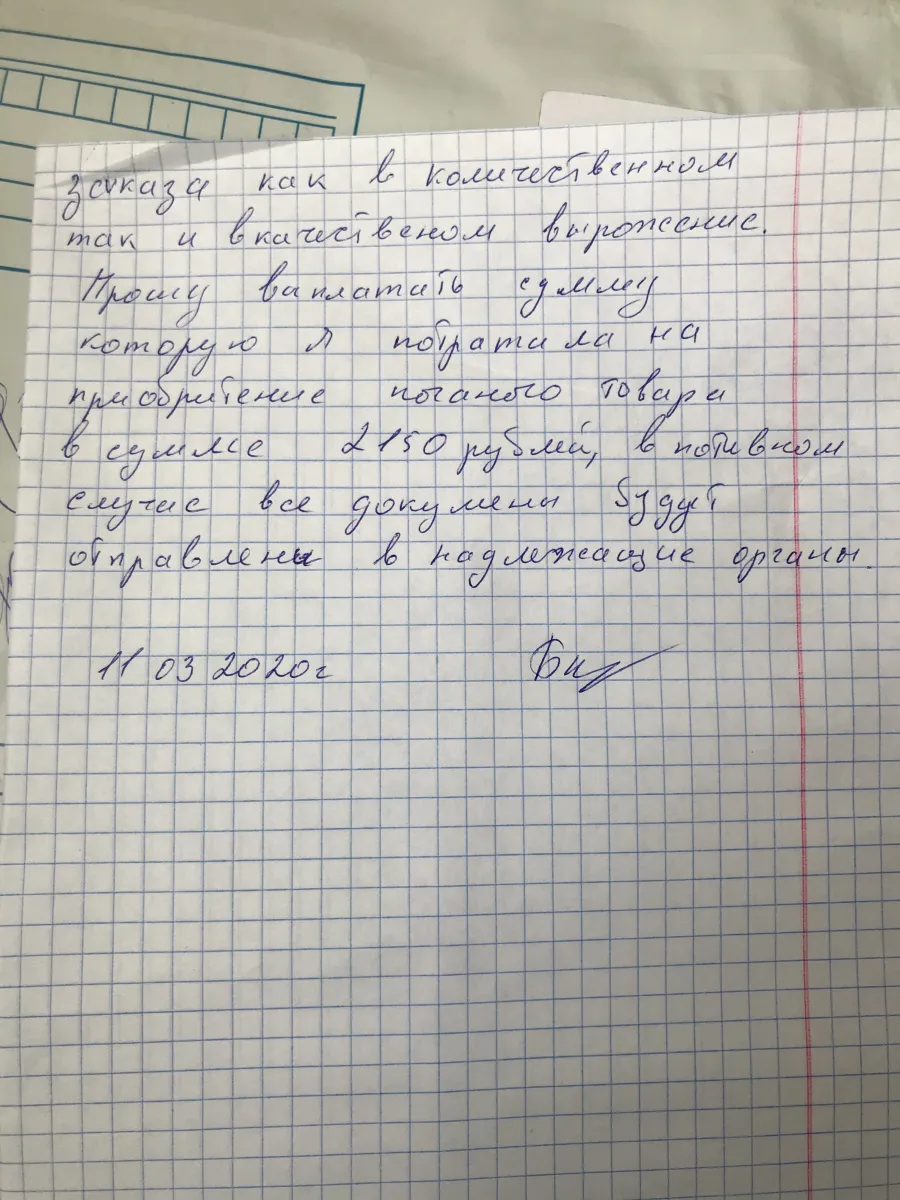 заказа как в количественном
так и вкачественом выражение.
Прошу выплатать сумму
которую я потратила на
приобритение поганого товара
в сумме 2150 рублей, в потивном
случае все докумены будут
отправлены в надлежащие органы.
11 03 2020г